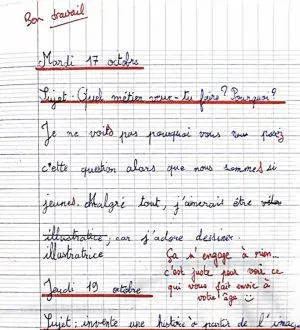 Bon travail
Mardi 17 octobre
Sujet : Quel métier veux-tu faire ? Pourquoi ?
Je ne vois pas pourquoi vous posez
cette question alors que nous sommes si
jeunes. Malgré tout, j'aimerais être
illustratice, car j'adore dessiner.
illustratrice
Ça n'engage à rien...
c'est juste pour voir ce
qui vous fait envie à
votre âge
Jeudi 19 octobre
Sujet : invente une histoire à partir de l'image